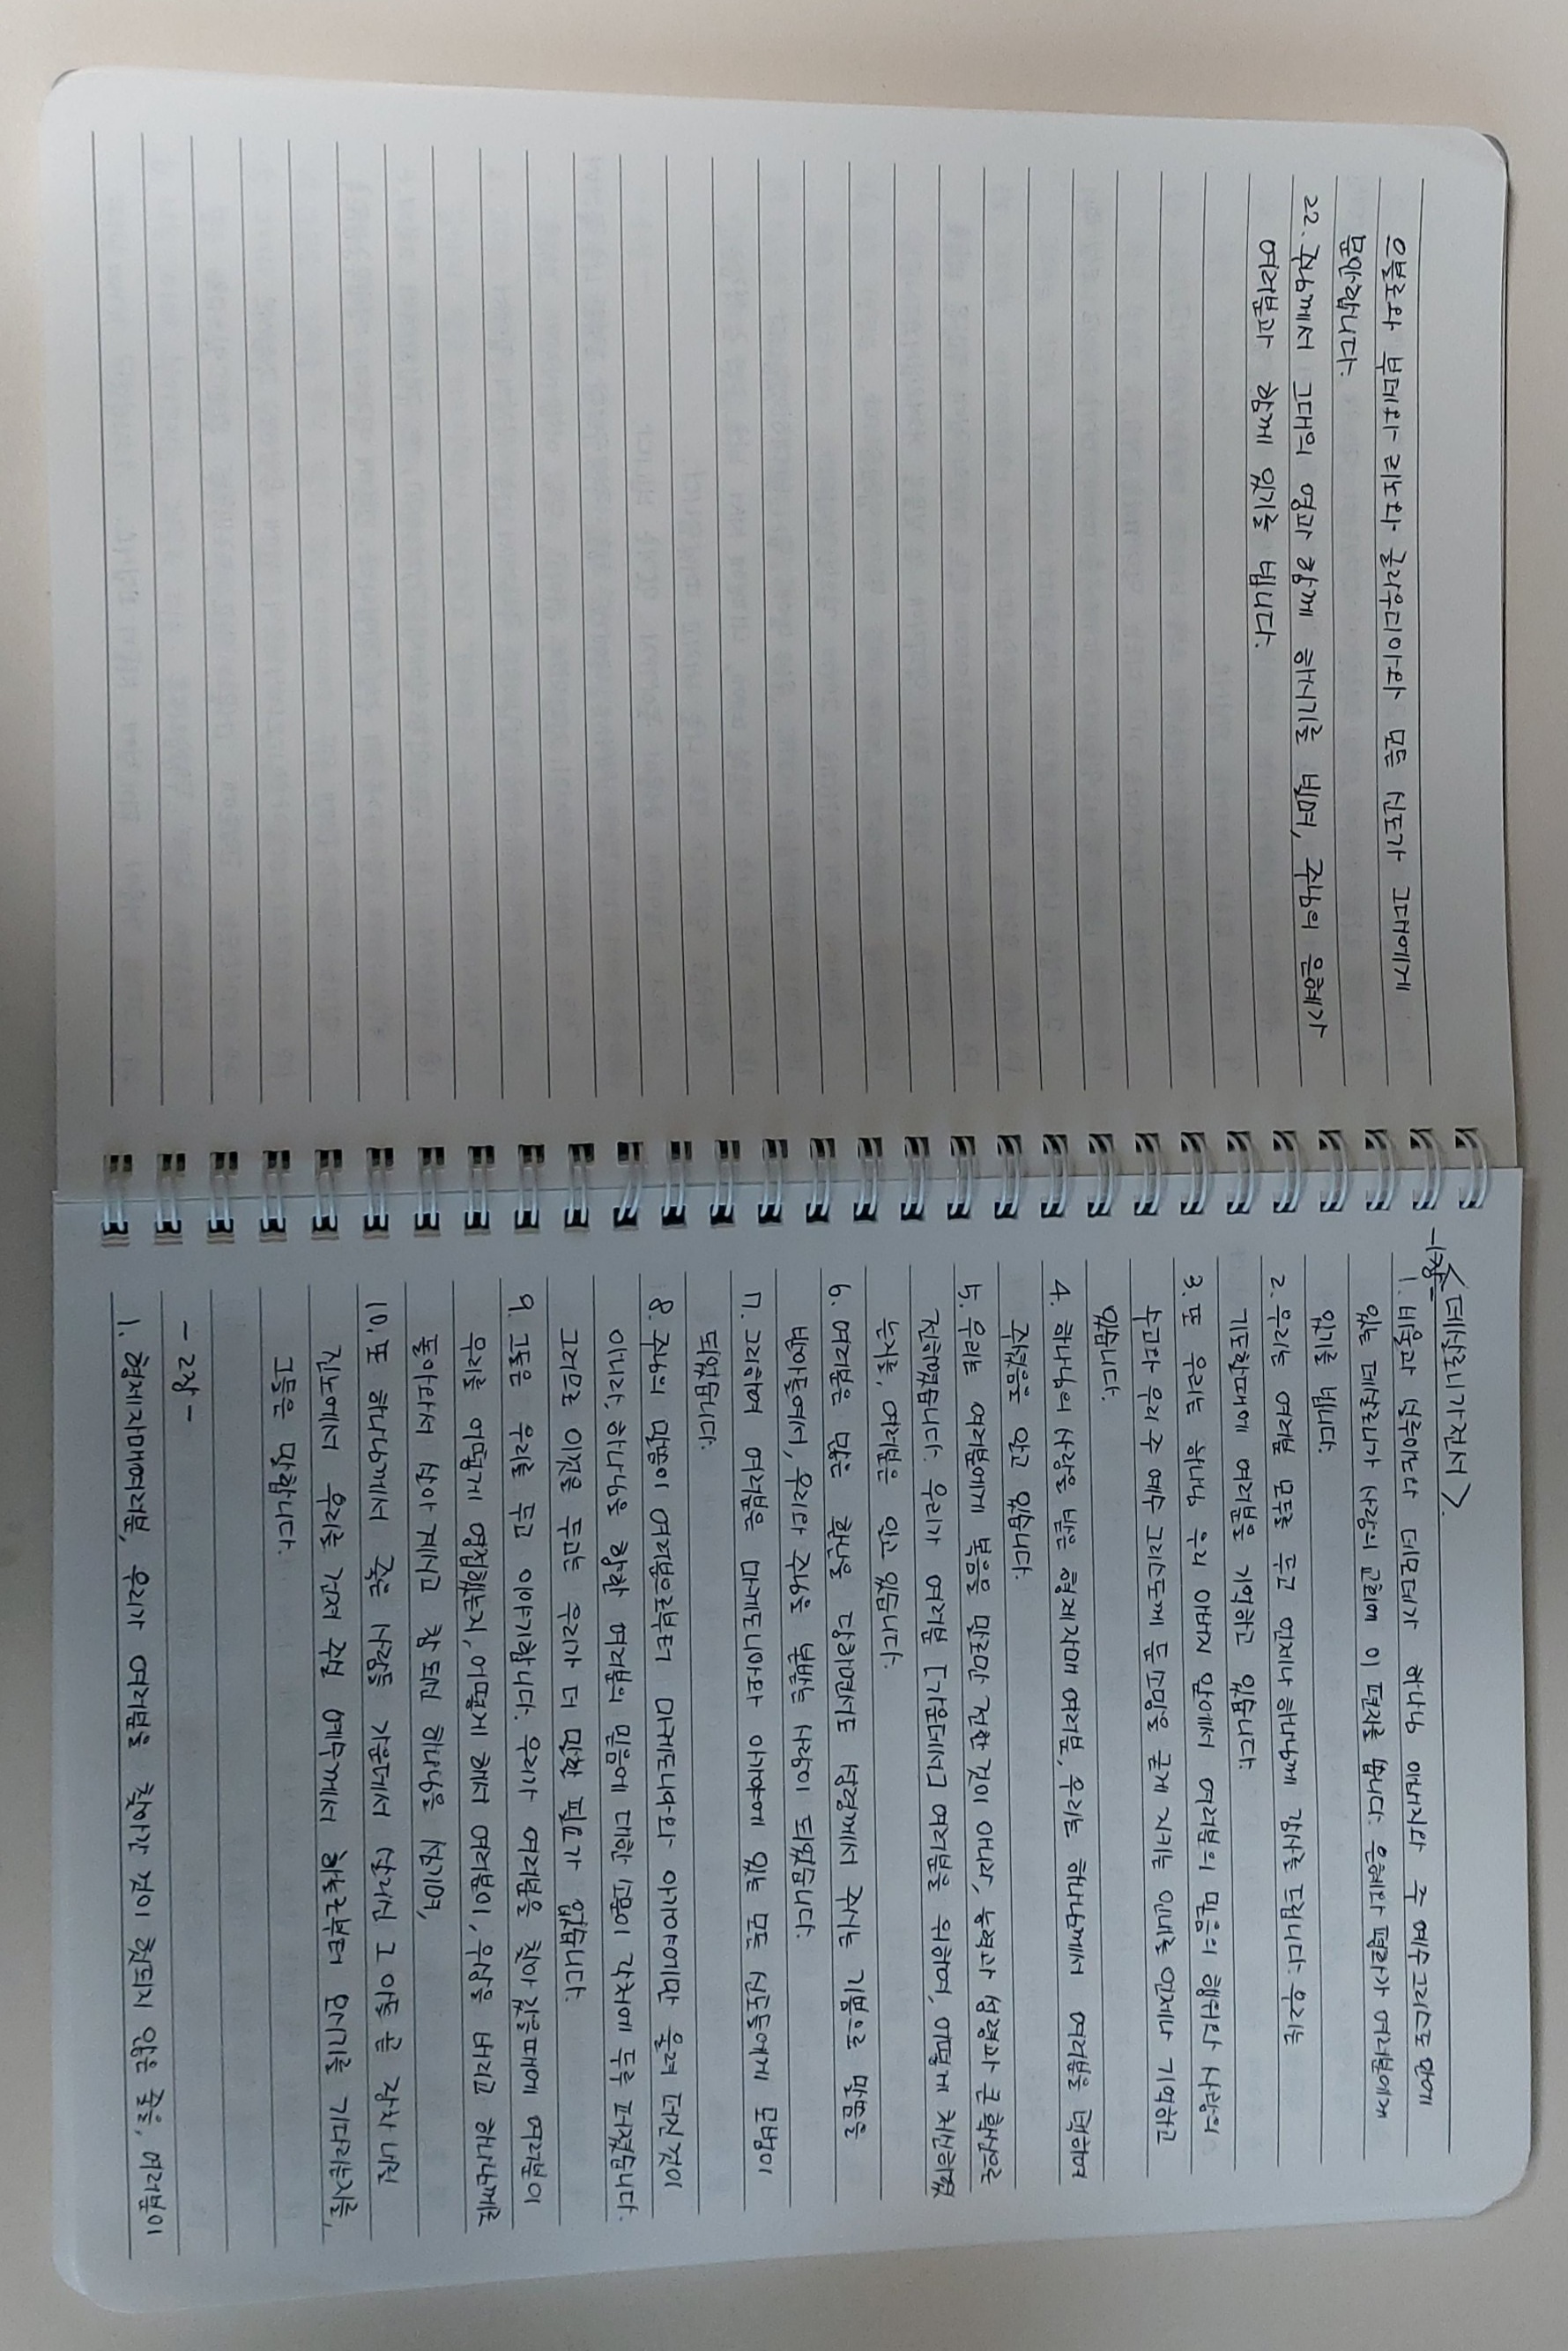 으불로와 부데와 리노와 글라우디아와 모든 신도가 그대에게
문안합니다.
22. 주님께서 그대의 영과 함께 하시기를 빌며, 주님의 은혜가
여러분과 함께 있기를 빕니다.
<데살로니가전서>
-1장-
1. 바울과 실루아노와 디모데가 하나님 아버지와 주 예수 그리스도 안에
있는 데살로니가 사람의 교회에 이 편지를 씁니다. 은혜와 평화가 여러분에게
있기를 빕니다.
2. 우리는 여러분 모두를 두고 언제나 하나님께 감사를 드립니다. 우리는
기도할때에 여러분을 기억하고 있습니다.
3. 또 우리는 하나님 우리 아버지 앞에서 여러분의 믿음의 행위와 사랑의
수고와 우리 주 예수 그리스도께 둔 소망을 굳게 지키는 인내를 언제나 기억하고
있습니다.
4. 하나님의 사랑을 받은 형제자매 여러분, 우리는 하나님께서 여러분을 택하여
주셨음을 알고 있습니다.
5. 우리는 여러분에게 복음을 말로만 전한 것이 아니라, 능력과 성령과 큰 확신으로
전하였습니다. 우리가 여러분 [가운데서] 여러분을 위하여, 어떻게 처신하였
는지를, 여러분은 알고 있습니다.
6. 여러분은 많은 환난을 당하면서도 성령께서 주시는 기쁨으로 말씀을
받아들여서, 우리와 주님을 본받는 사람이 되었습니다.
7. 그리하여 여러분은 마케도니아와 아가야에 있는 모든 신도들에게 모범이
되었습니다.
8. 주님의 말씀이 여러분으로부터 마케도니아와 아가야에만 울려 퍼진 것이
아니라, 하나님을 향한 여러분의 믿음에 대한 소문이 각처에 두루 퍼졌습니다.
그러므로 이것을 두고는 우리가 더 말할 필요가 없습니다.
9. 그들은 우리를 두고 이야기합니다. 우리가 여러분을 찾아 갔을때에 여러분이
우리를 어떻게 영접했는지, 어떻게 해서 여러분이, 우상을 버리고 하나님께로
돌아와서 살아 계시고 참되신 하나님을 섬기며,
10. 또 하나님께서 죽은 사람들 가운데서 살리신 그 아들 곧 장차 내릴
진노에서 우리를 건져 주실 예수께서 하늘로부터 오시기를 기다리는지를,
그들은 말합니다.
-2장-
1. 형제자매여러분, 우리가 여러분을 찾아간 것이 헛되지 않은 줄을, 여러분이